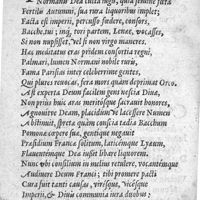 Normanis Dea culta iugis, quia senserit ista
Fertilis Autumni, sua rura liquoribus implet;
Facta est imperij, percusso fœdere, consors,
Bacche, tui; mq, tori partem, Lenæe, vocasses,
Si non nupsisset, vel si non virgo maneres.
Has meditatur eras pridem consortia regni,
Palmari, lumen Normani nobile ruris,
Fama Parisian inter celeberrime gentes,
Qui plures reuocas, fera mors quàm deprimat Orco.
Ast experta Deum facilem geni nescia Diuæ,
Non prius huic aras meritósque sacrauit honores,
Agnouitve Deam, placidum vt lacessere Numen
Abstinuit, spreta quàm conscia tædia Bacchum
Pomonæ cœpere sua, gentique negauit
Præsidium Franca solitum, laticemque Lyæum,
Flauentémque Dea iussit libare liquorem,
Nunc vbi consilium in melius retulere, vocantémque
Audiuere Deum Franci; tibi promere pacti
Cura fuit tanti causas, viresque, vicésque
Imperij, &amp; Diuûm communia iura duobus: